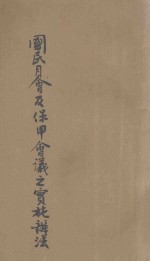 國民月會及保甲會議之實施辦法